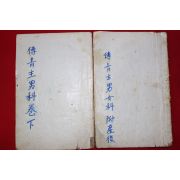 傅青主男女科 附産後
傅青主男科卷下